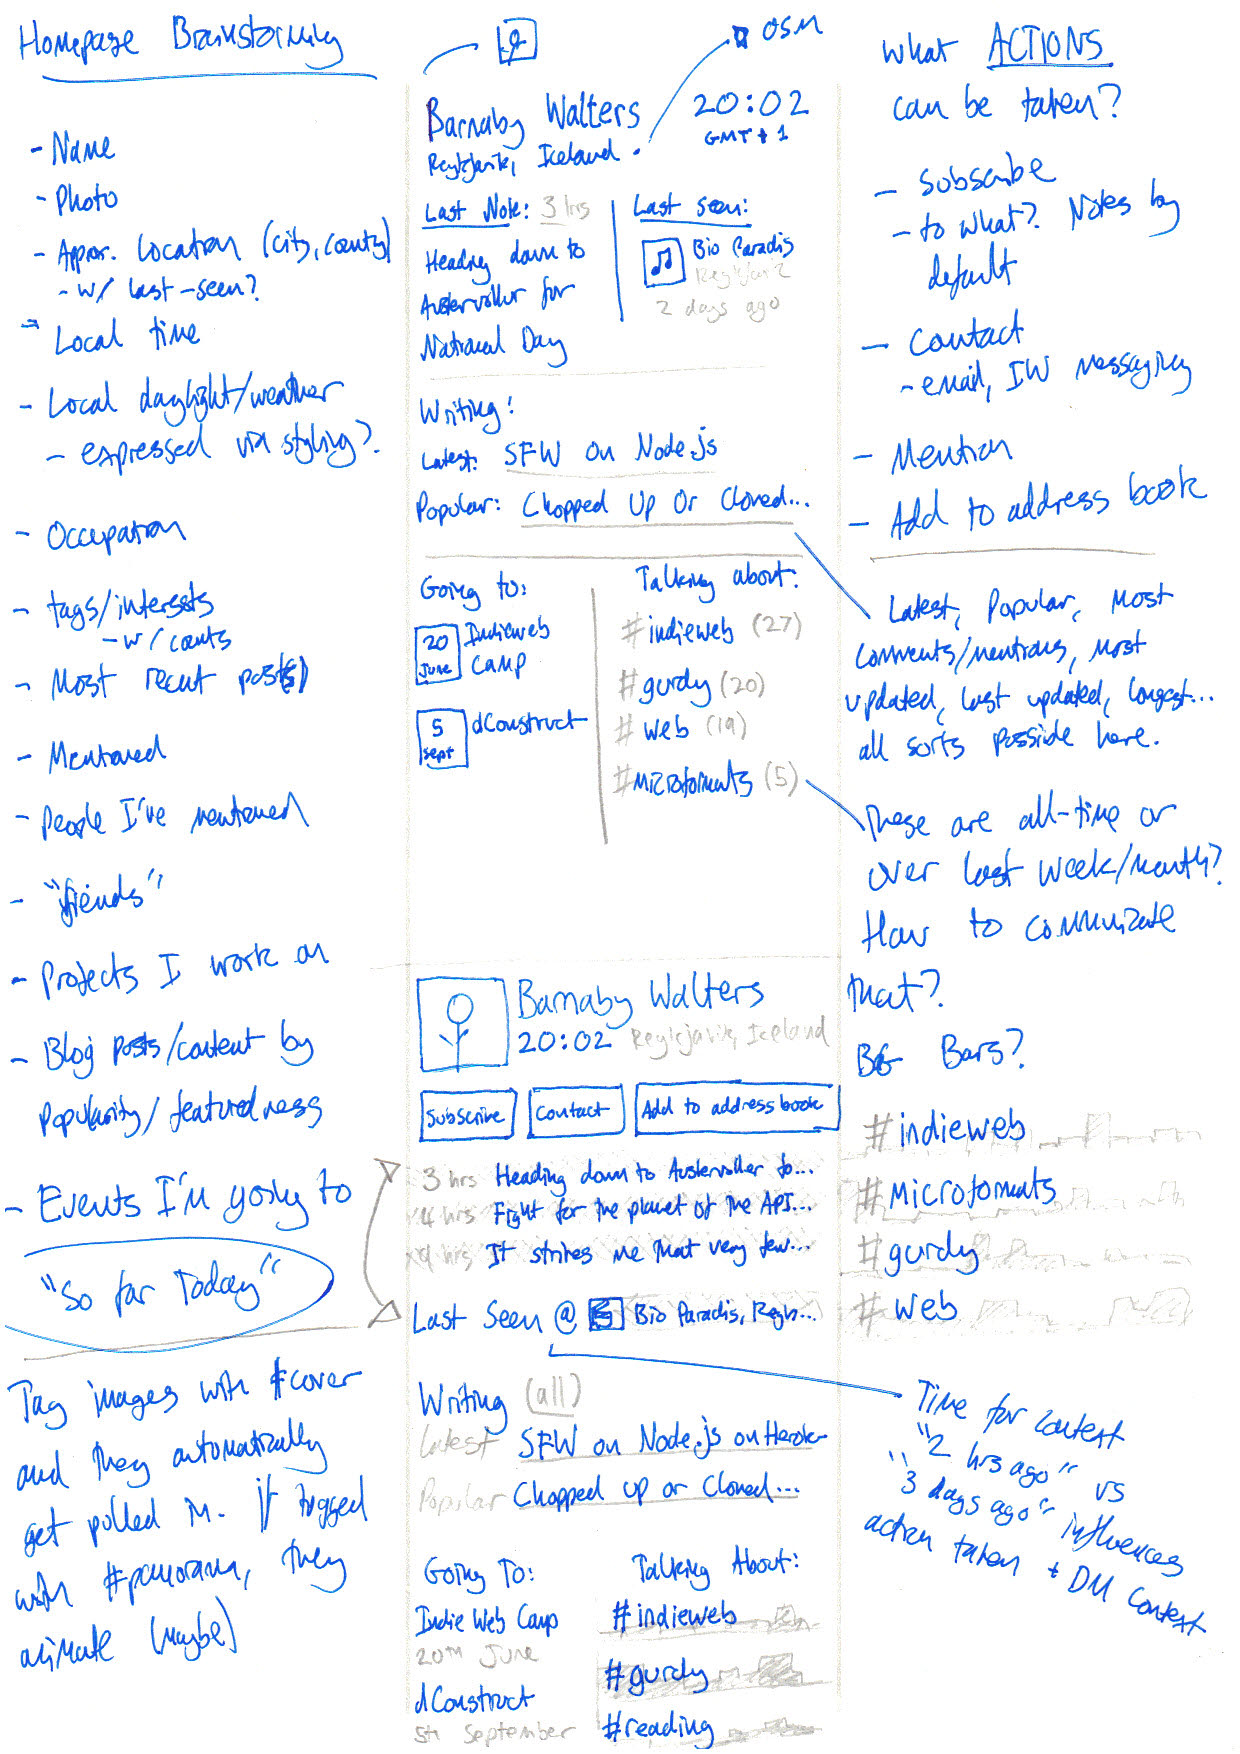 Homepage Brainstorming
- Name
- Photo
- Approx. Location (city, county)
- w/ last-seen?
Local time
- Local daylight/weather
- expressed via styling?
- Occupation
- tags/interests
- w/ counts
- Most recent post(s)
- Mentioned
- People I've mentioned
- "friends"
- Projects I work on
- Blog posts/content by
Popularity/featuredness
- Events I'm going to
"So far Today"
Tag images with #cover
and they automatically
get pulled in. If tagged
with #panorama, they
animate (maybe)
OSM
Barnaby Walters
Reykjavik, Iceland
20:02
GMT + 1
Last Note: 3 hrs
Heading down to
Austervollur for
National Day
Last seen:
Bio Paradis
Reykjavik
2 days ago
Writing:
Latest: SFW on Node.js
Popular: Chopped Up Or Cloned...
Going to:
20 June Indieweb
Camp
5 Sept dConstruct
Talking about:
#indieweb (27)
#gurdy (20)
#web (19)
#microformats (5)
Barnaby Walters
20:02 Reykjavik, Iceland
Subscribe
Contact
Add to address book
3 hrs Heading down to Austervoller fo...
4 hrs Fight for the planet of the API...
4 hrs It strikes me that very few...
Last Seen @ Bio Paradis, Reyk...
Writing (all)
Latest SFW on Node.js on Heroku
Popular Chopped up or Cloned...
Going To:
Indie Web Camp
20th June
dConstruct
5th September
Talking About:
#indieweb
#gurdy
#reading
What ACTIONS
can be taken?
- Subscribe
- to what? Notes by
default
- Contact
- email, IW messaging
- Mention
- Add to address book
Latest, Popular, Most
comments/mentions, most
updated, last updated, longest...
all sorts possible here.
These are all-time or
over last week/month?
How to communicate
that?
BG Bars?
#indieweb
#microformats
#gurdy
#web
Time for context
"2 hrs ago" vs
"3 days ago" influences
action taken + DM context